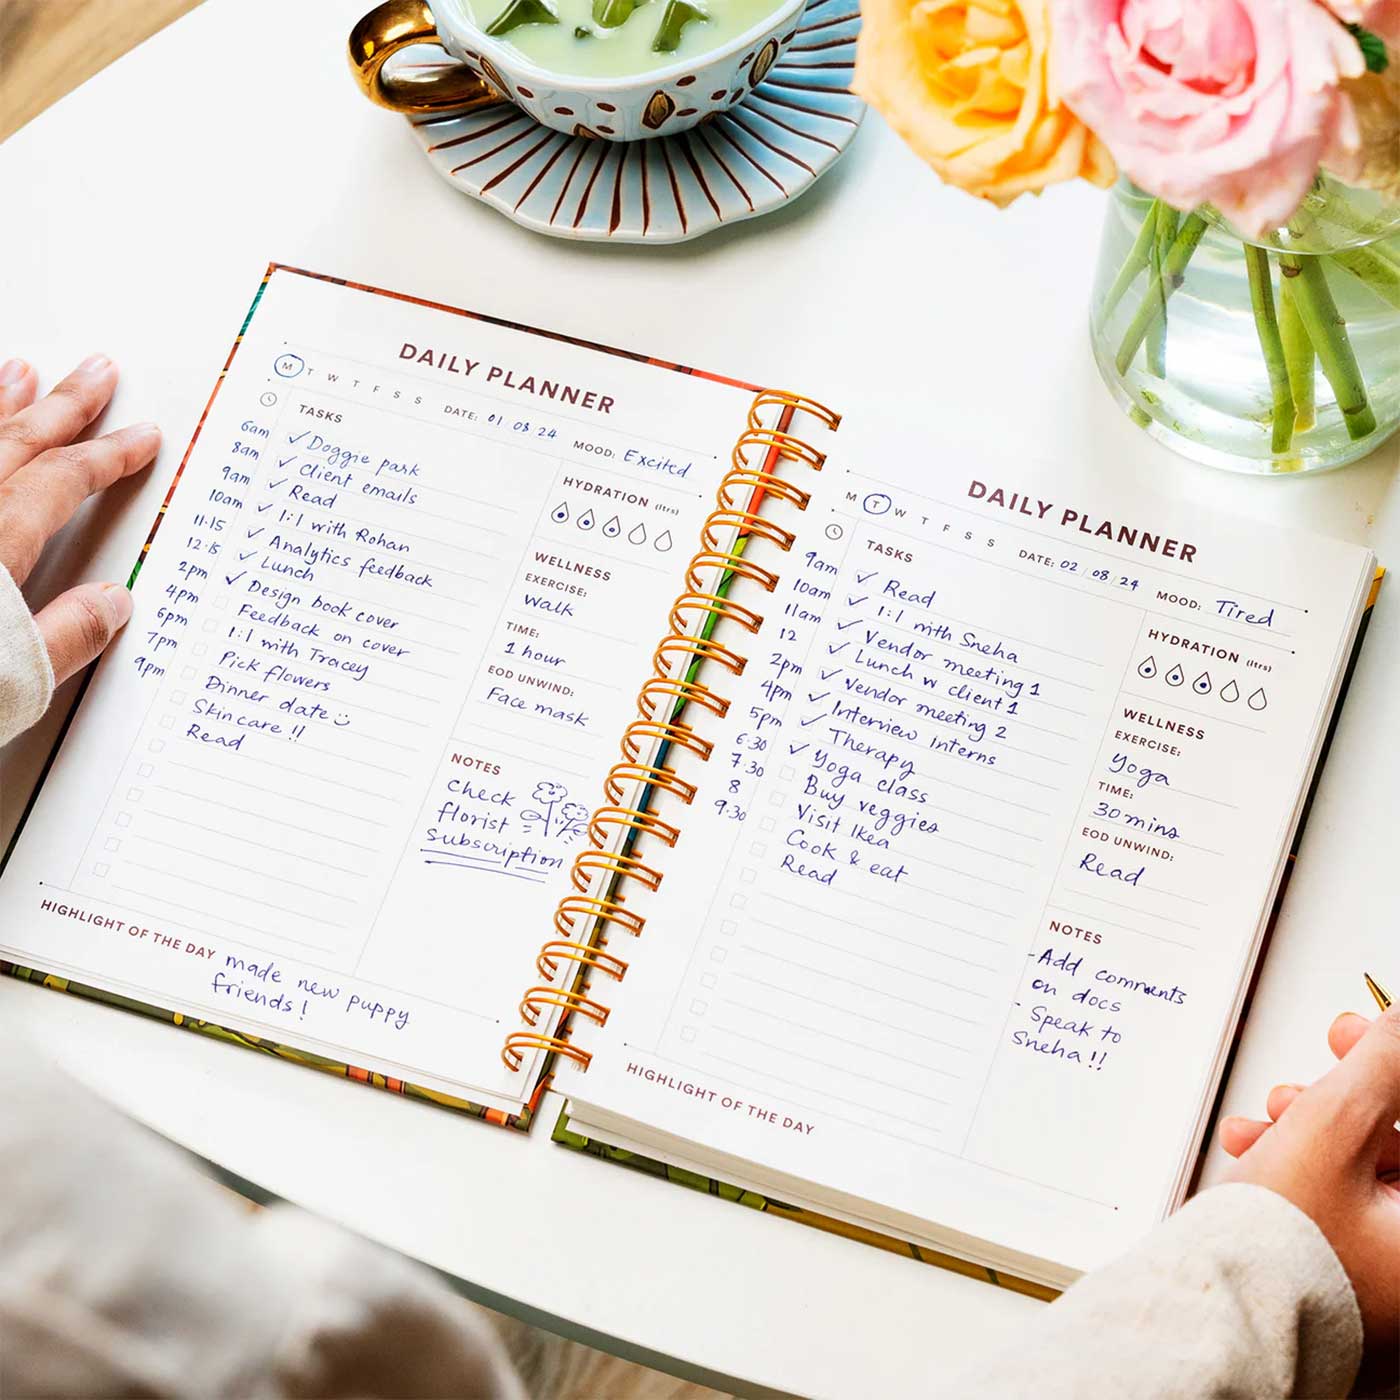 DAILY PLANNER
M T W T F S S DATE: 01 08 24 MOOD: Excited
TASKS
6am
8am
9am
10am
11.15
12.15
2pm
4pm
6pm
7pm
9pm
Doggie park
Client emails
Read
1:1 with Rohan
Analytics feedback
Lunch
Design book cover
Feedback on cover
1:1 with Tracey
Pick flowers
Dinner date
Skincare !!
Read
HYDRATION (ltrs)
WELLNESS
EXERCISE:
Walk
TIME:
1 hour
EOD UNWIND:
Face mask
NOTES
Check
florist
subscription
HIGHLIGHT OF THE DAY made new puppy
friends!
DAILY PLANNER
M T W T F S S DATE: 02 08 24 MOOD: Tired
TASKS
9am
10am
11am
12
2pm
4pm
5pm
6.30
7.30
8
9.30
Read
1:1 with Sneha
Vendor meeting 1
Lunch w client 1
Vendor meeting 2
Interview interns
Therapy
Yoga class
Buy veggies
Visit Ikea
Cook & eat
Read
HYDRATION (ltrs)
WELLNESS
EXERCISE:
Yoga
TIME:
30 mins
EOD UNWIND:
Read
NOTES
-Add comments
on docs
- Speak to
Sneha!!
HIGHLIGHT OF THE DAY